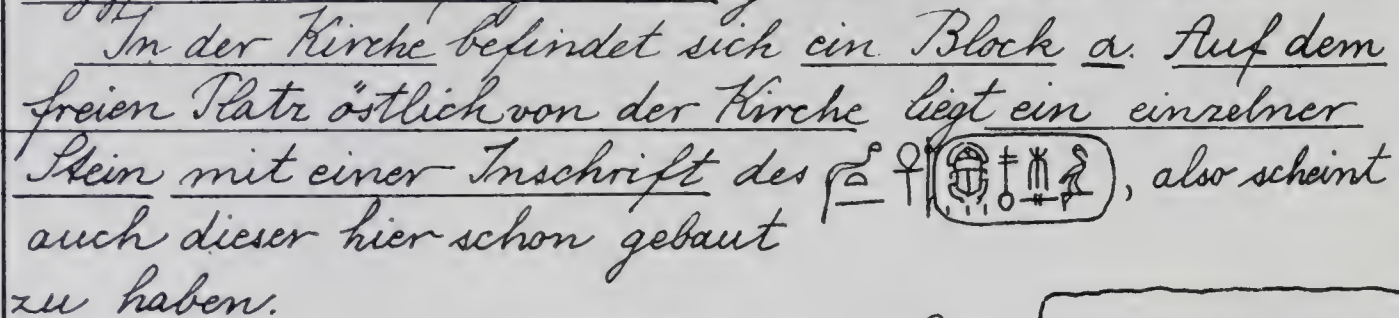 In der Kirche befindet sich ein Block a. Auf dem
freien Platz östlich von der Kirche liegt ein einzelner
Stein mit einer Inschrift des , also scheint
auch dieser hier schon gebaut
zu haben.